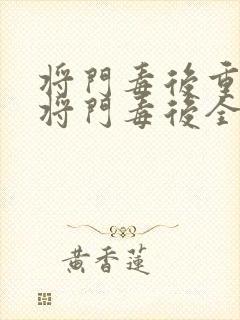 將門毒後重
將門毒後全
黃香蓮